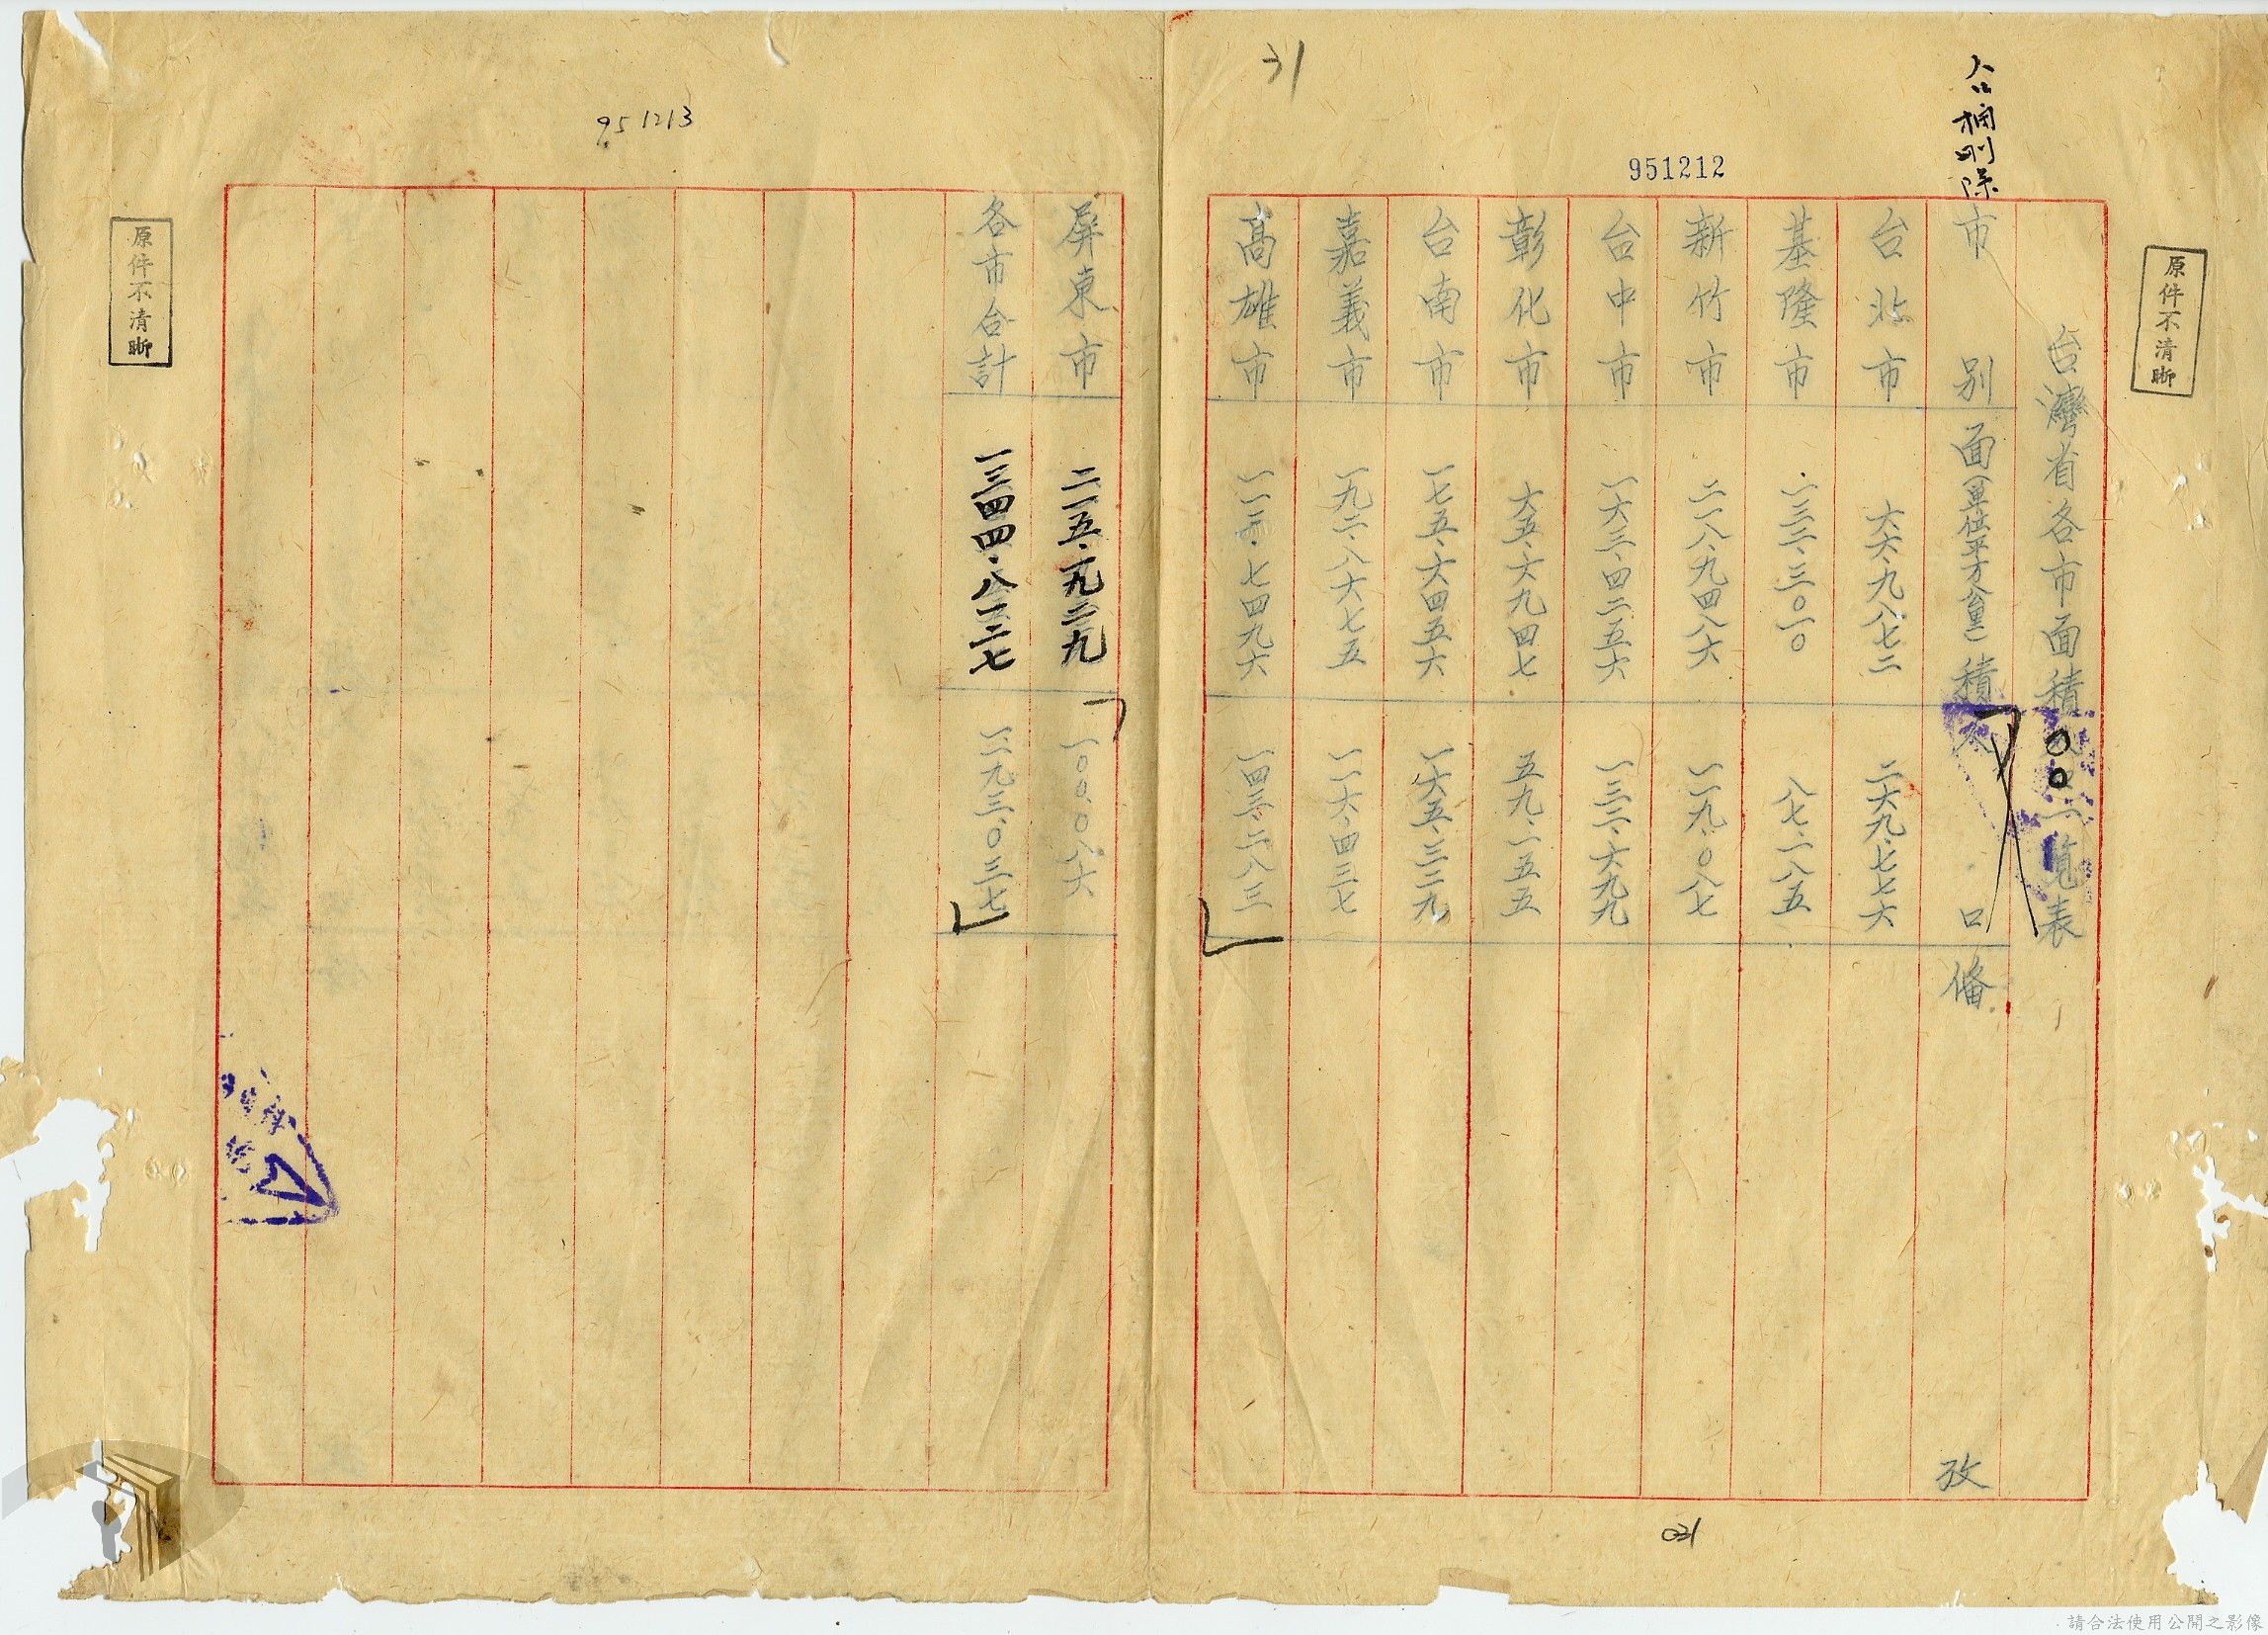 人口欄刪除
台灣省各市面積〇〇一覽表
市別 面(單位平方公里)積 人口 備攷
台北市 六六.九八七二 二六九.七七六
基隆市 一三二.三〇一〇 八七.一八五
新竹市 二一八.九四八六 一一九.〇八七
台中市 一六三.四二五六 一三二.六九九
彰化市 六五.六九四七 五九.一五五
台南市 一七五.六四五六 一六五.三二九
嘉義市 一九二.八六七五 一一六.四三七
高雄市 一一三.七四九六 一四三.二八三
屏東市 二一五.一九二九 一〇〇.〇八六
各市合計 一三四四.八一二七 一一九三.〇三七
原件不清晰
原件不清晰
951212
951213
31
031
請合法使用公開之影像